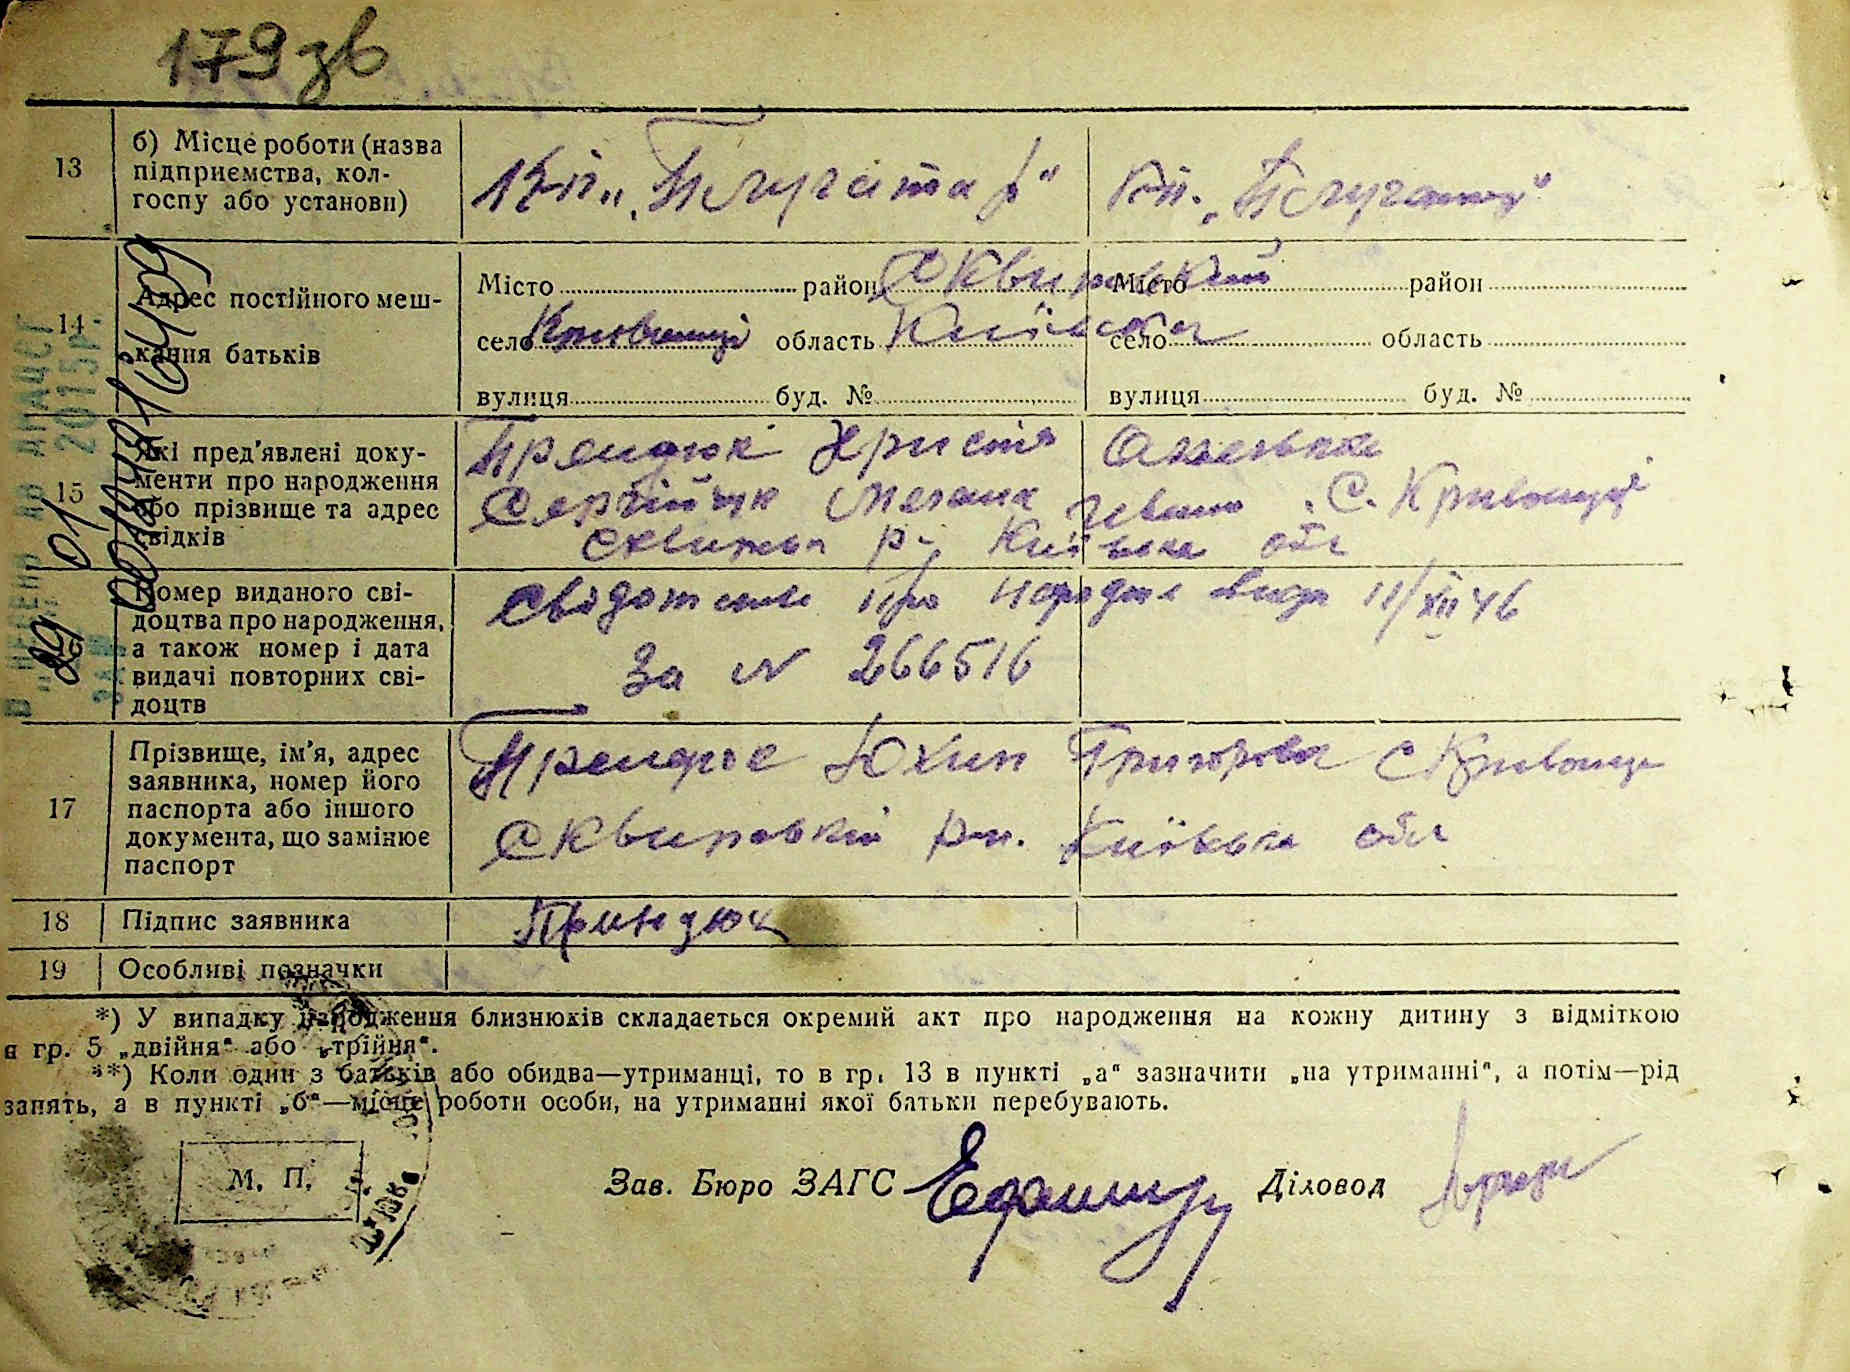 179 зв
13
б) Місце роботи (назва
підприємства, кол-
госпу або установи)
К-п „Плугатар“
К-п. „Плугатар“
14
Адрес постійного меш-
кання батьків
Місто район Сквирський
село Кривошиї область Київська
вулиця буд. №
Місто район
село область
вулиця буд. №
15
Які пред'явлені доку-
менти про народження
або прізвище та адрес
свідків
Прендюк Христя
Сергійчук с. Кривошиї
Сквирськ р-, Київська обл
16
Номер виданого сві-
доцтва про народження,
а також номер і дата
видачі повторних сві-
доцтв
Свідотство про народж видан 11/XII 46
За N 266516
17
Прізвище, ім'я, адрес
заявника, номер його
паспорта або іншого
документа, що замінює
паспорт
Прендюк Юхим Григорови с Кривошиї
Сквирський р-н. Київська обл
18
Підпис заявника
Приндюк
19
Особливі позначки
*) У випадку народження близнюків складається окремий акт про народження на кожну дитину з відміткою
в гр. 5 „двійня“ або „трійня“.
**) Коли один з батьків або обидва—утриманці, то в гр. 13 в пункті „а“ зазначити „на утриманні“, а потім—рід
занять, а в пункті „б“—місце роботи особи, на утриманні якої батьки перебувають.
М. П.
Зав. Бюро ЗАГС
Діловод
2015р.